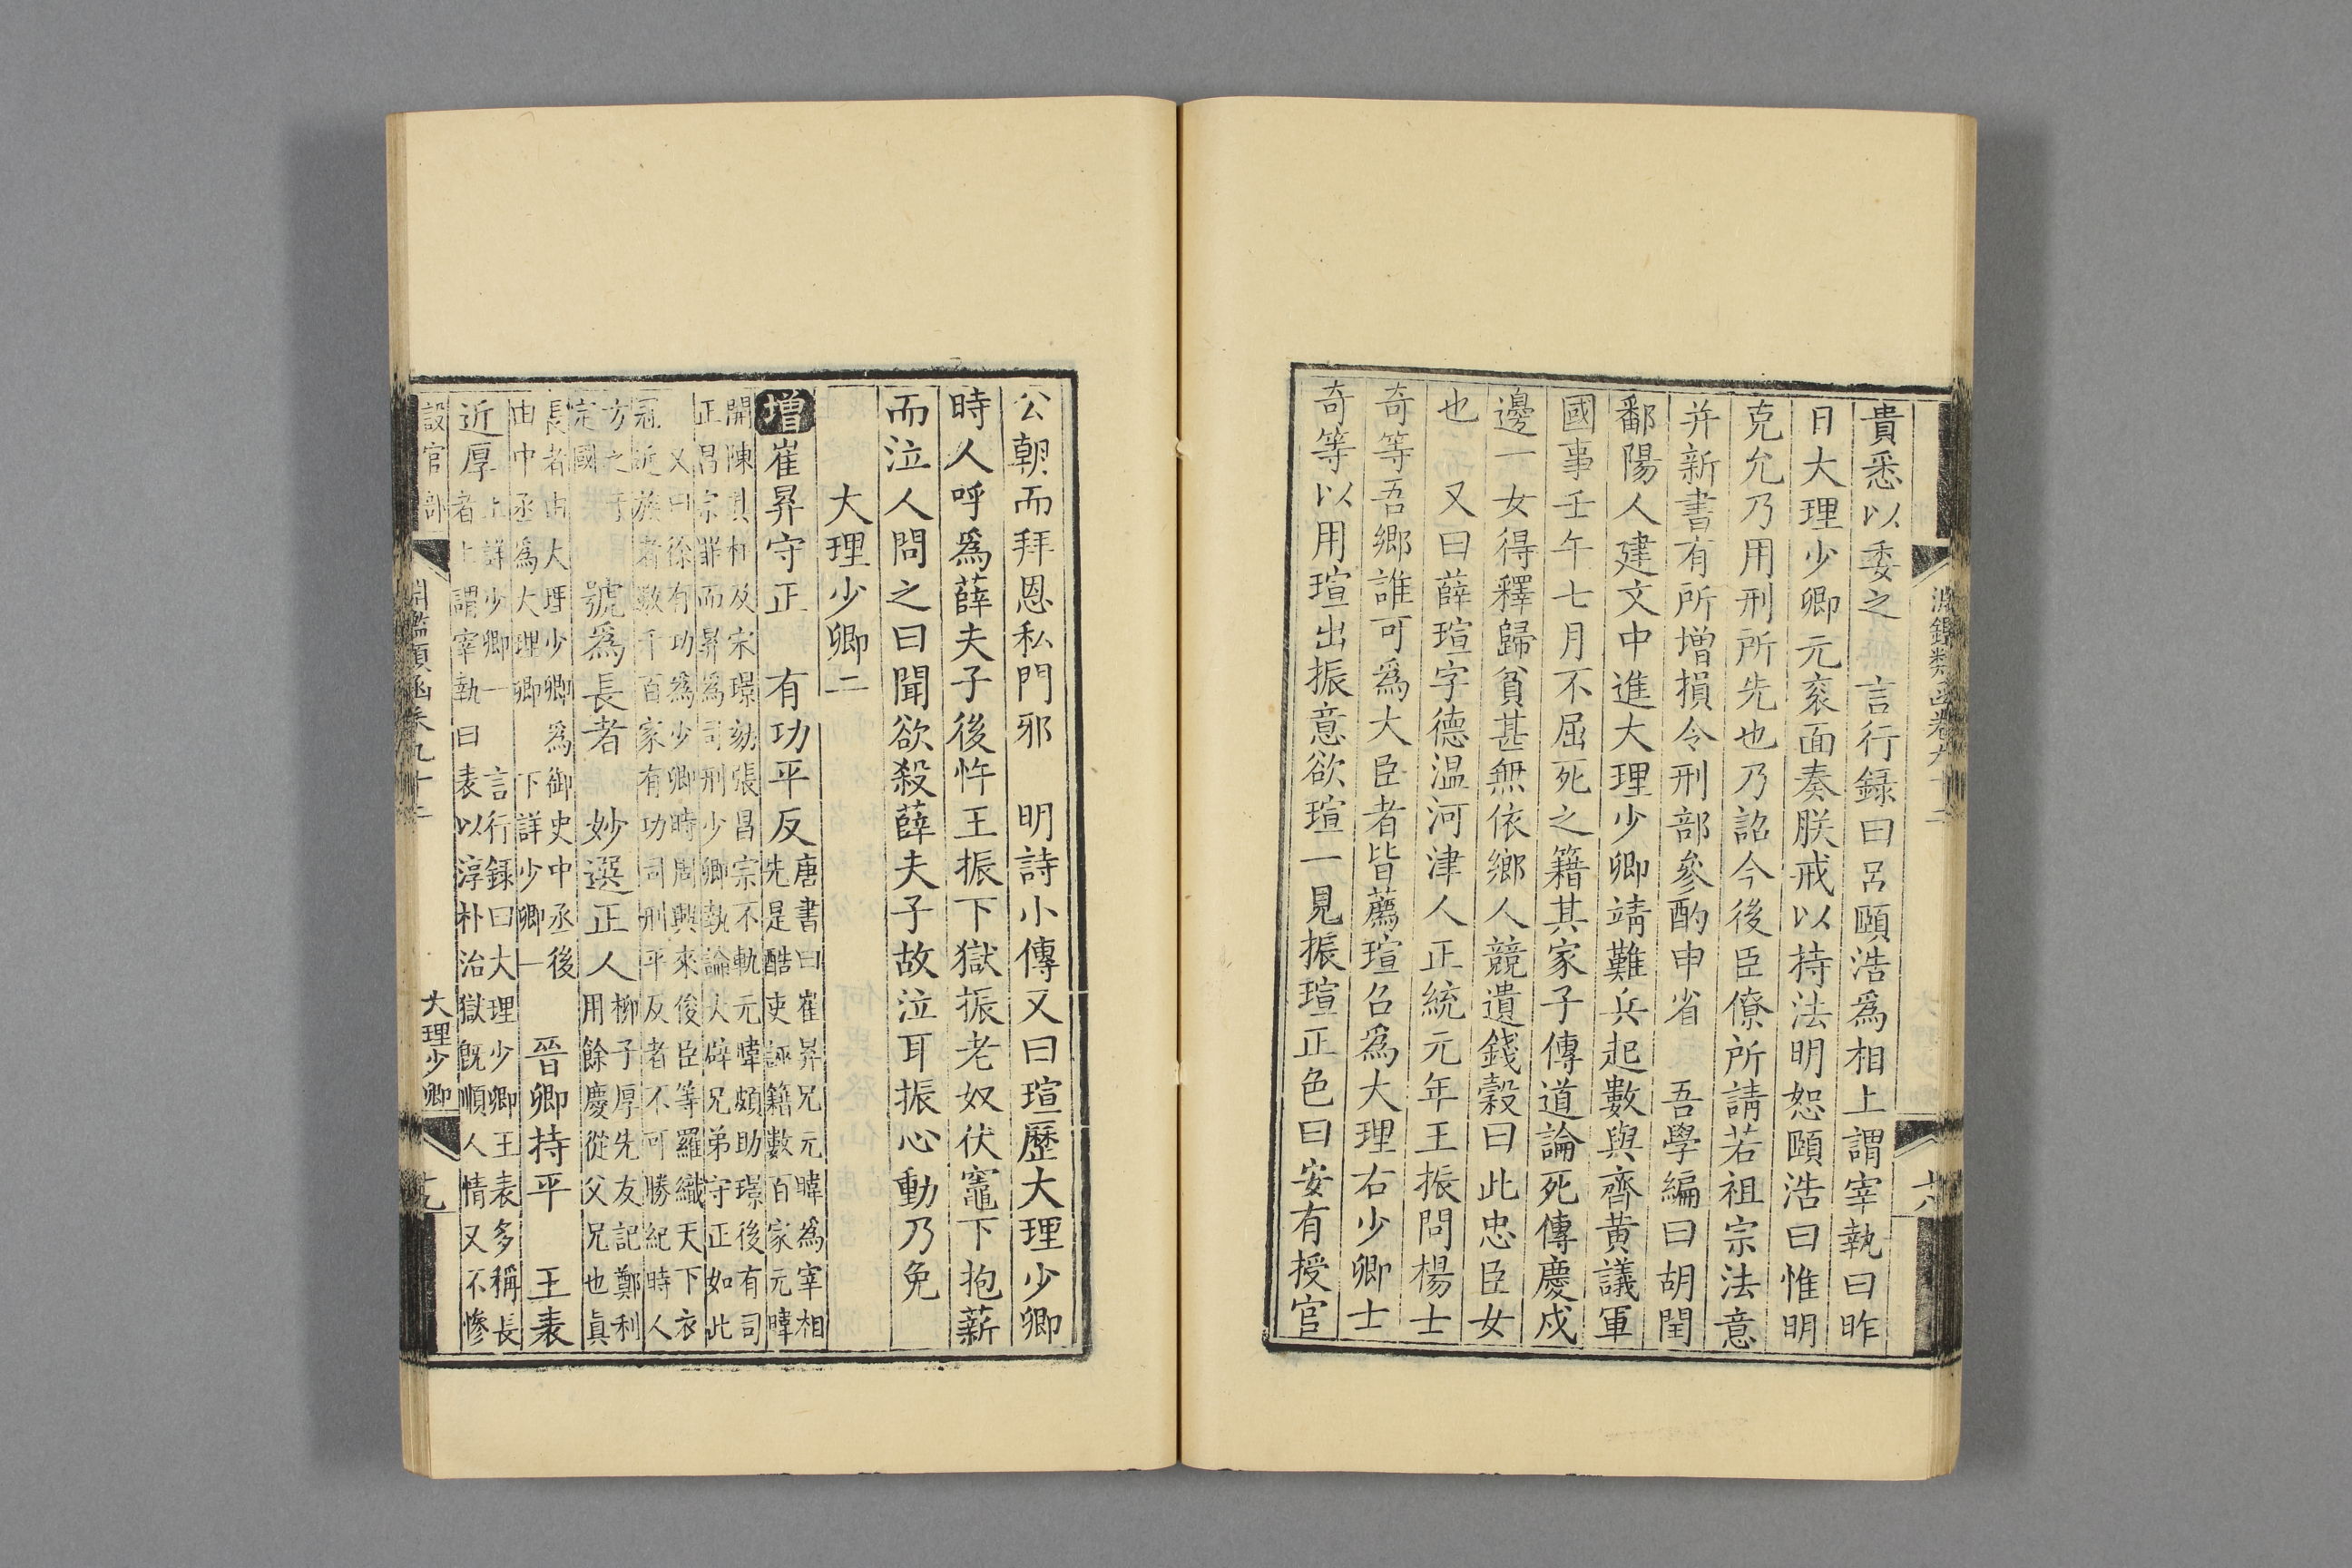 貴悉以委之　言行錄曰呂頤浩爲相上謂宰執曰昨
日大理少卿元衮面奏朕戒以持法明恕頤浩曰惟明
克允乃用刑所先也乃詔今後臣僚所請若祖宗法意
并新書有所增損令刑部參酌申省　吾學編曰胡閏
鄱陽人建文中進大理少卿靖難兵起數與齊黄議軍
國事壬午七月不屈死之籍其家子傳道論死傳慶戍
邊一女得釋歸貧甚無依鄉人競遺錢穀曰此忠臣女
也　又曰薛瑄字德温河津人正統元年王振問楊士
奇等吾鄉誰可爲大臣者皆薦瑄召爲大理右少卿士
奇等以用瑄出振意欲瑄一見振瑄正色曰安有授官
淵鑑類函卷九十二
十八
公朝而拜恩私門邪　明詩小傳又曰瑄歷大理少卿
時人呼爲薛夫子後忤王振下獄振老奴伏竈下抱薪
而泣人問之曰聞欲殺薛夫子故泣耳振心動乃免
大理少卿二
增崔昇守正　有功平反唐書曰崔昇兄元暐爲宰相
先是酷吏誣籍數百家元暐
開陳其枉及宋璟劾張昌宗不軌元暐頗助璟後有司
正昌宗罪而昇爲司刑少卿執論大辟兄弟守正如此
又曰徐有功爲少卿時周興來俊臣等羅織天下衣
冠近族者數千百家有功司刑平反者不可勝紀時人
方之于
定國　號爲長者　妙選正人柳子厚先友記鄭利
用餘慶從父兄也眞
長者由大理少卿爲御史中丞後
由中丞爲大理卿　下詳少卿一　晉卿持平　王袤
近厚上詳少卿一　言行録曰大理少卿王袤多稱長
者上謂宰執曰袤以淳朴治獄既順人情又不慘
設官部
淵鑑類函卷九十二
大理少卿
十九